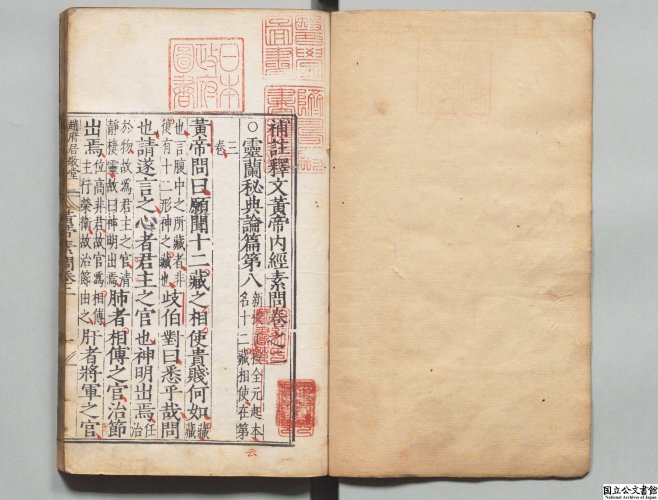 補註釋文黃帝內經素問卷之三
○靈蘭秘典論篇第八
新校正按全元起本
名十二藏相使在第
三
卷
黃帝問曰願聞十二藏之相使貴賤何如
藏
藏
也言腹中之所藏者非
復有十二形神之藏也
岐伯對曰悉乎哉問
也請遂言之心者君主之官也神明出焉
任
治
於物故為君主之官清
靜棲靈故曰神明出焉
肺者相傅之官治節
出焉
位高非君故官為相傅
主行榮衛故治節由之
肝者將軍之官
趙府居敬堂
日本
政府
圖書
国立公文書館
National Archives of Japan